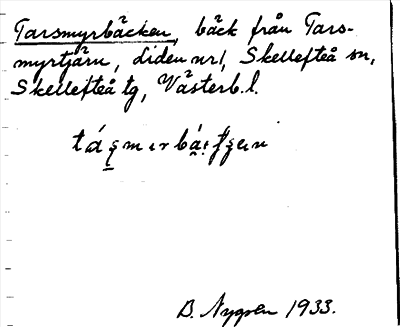 Tarsmyrbäcken, bäck från Tars-
myrtjärn, diden nr 1, Skellefteå sn,
Skellefteå tg, Västerb. l.
B. Nygren 1933.